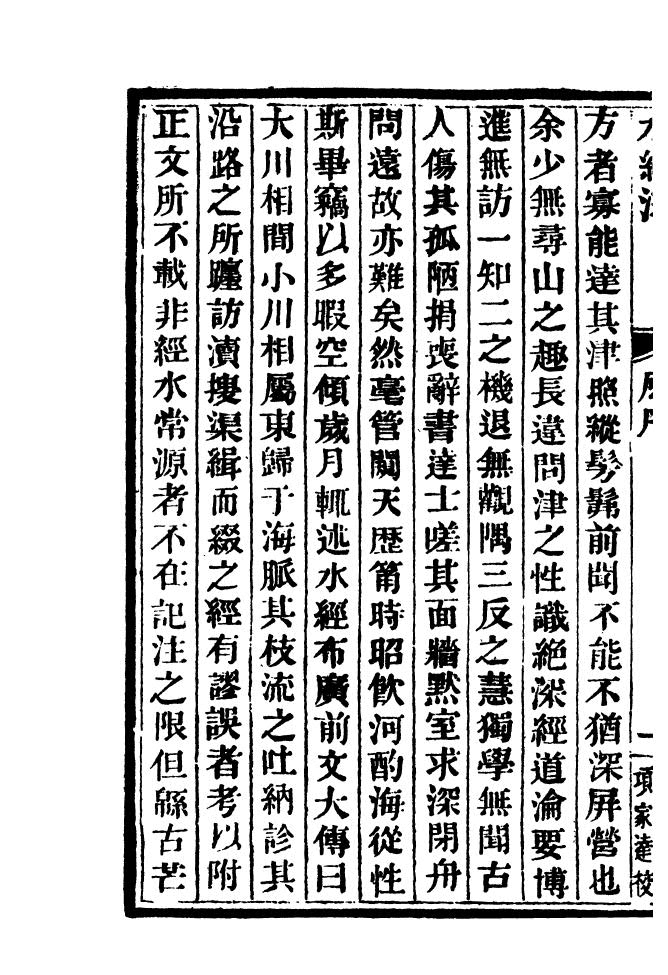 水經注
原序
一
項家達校
方者寡能達其津照縱髣髴前聞不能不猶深屏營也
余少無尋山之趣長違問津之性識絶深經道淪要博
進無訪一知二之機退無觀隅三反之慧獨學無聞古
人傷其孤陋捐喪辭書達士嗟其面牆默室求深閉舟
問遠故亦難矣然毫管闚天歴筩時昭飲河酌海從性
斯畢竊以多暇空傾歲月輒述水經布廣前文大傳曰
大川相間小川相屬東歸于海脈其枝流之吐納診其
沿路之所躔訪瀆搜渠緝而綴之經有謬誤者考以附
正文所不載非經水常源者不在記注之限但緜古芒